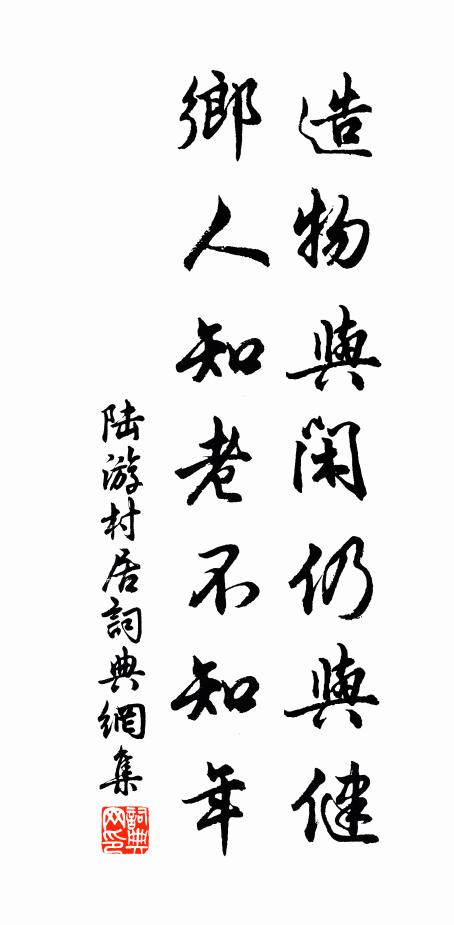 造物與閑仍與健
鄉人知老不知年
陆游村居詞典網集
詞典
网印